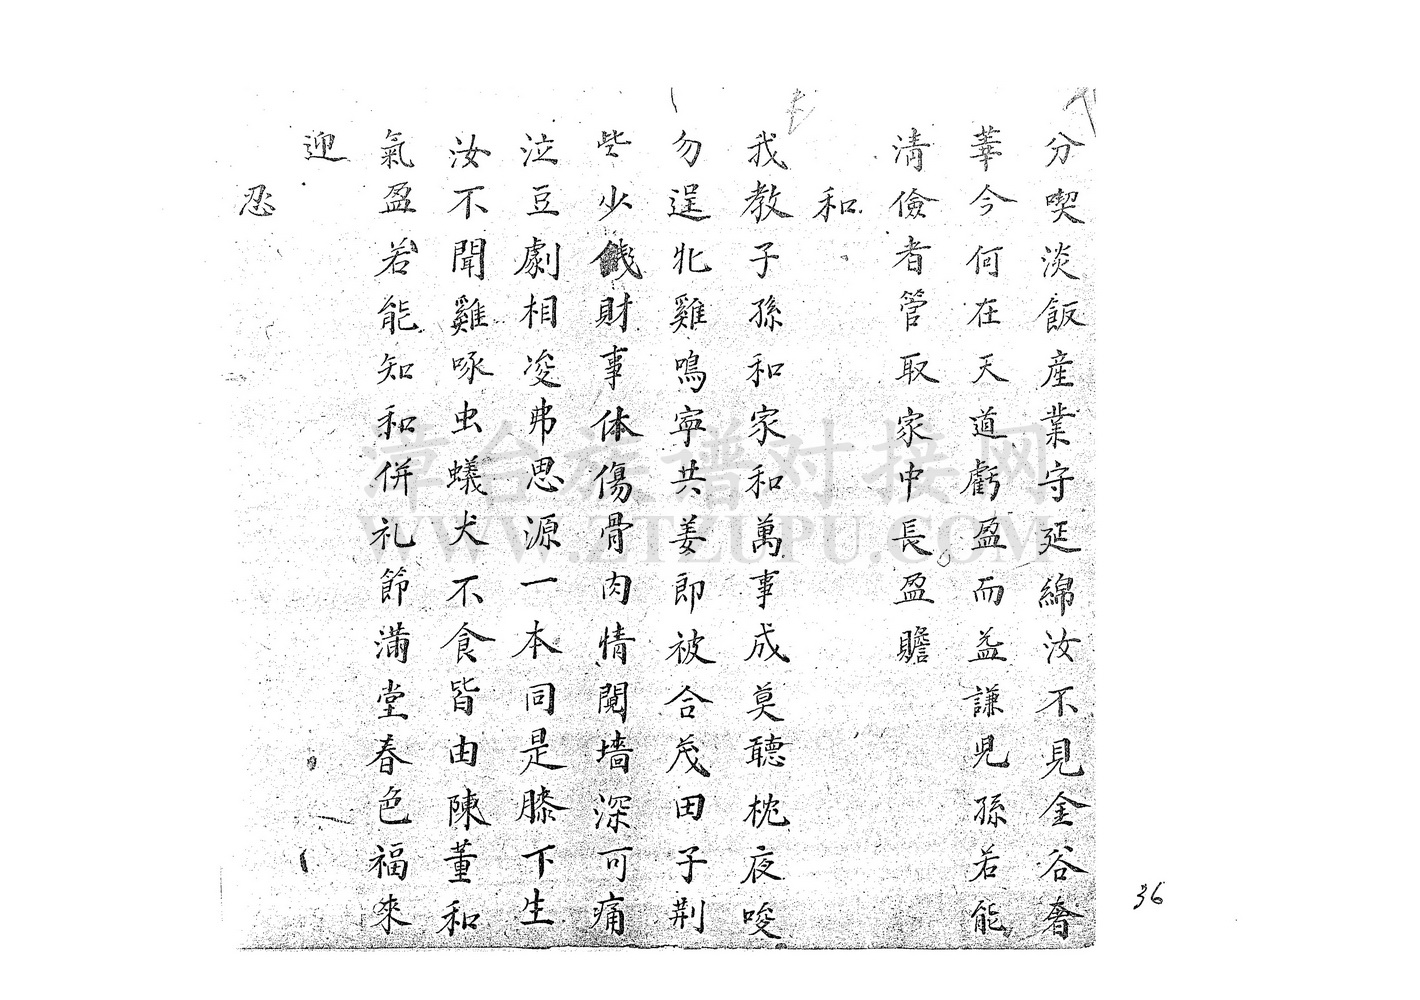 分喫淡飯産業守延綿汝不見金谷奢
華今何在天道虧盈而益謙児孫若能
清儉者管取家中長盈贍
和
我教子孫和家和萬事成莫聽枕夜唆
勿逞牝雞鳴寧共姜即被合茂田子荆
些少錢財事体傷骨肉情鬩墙深可痛
泣豆劇相凌弗思源一本同是膝下生
汝不聞雞啄虫蟻犬不食皆由陳董和
氣盈若能知和併礼節滿堂春色福來
迎
忍
36
漳台族谱对接网
WWW.ZTZUPU.COM